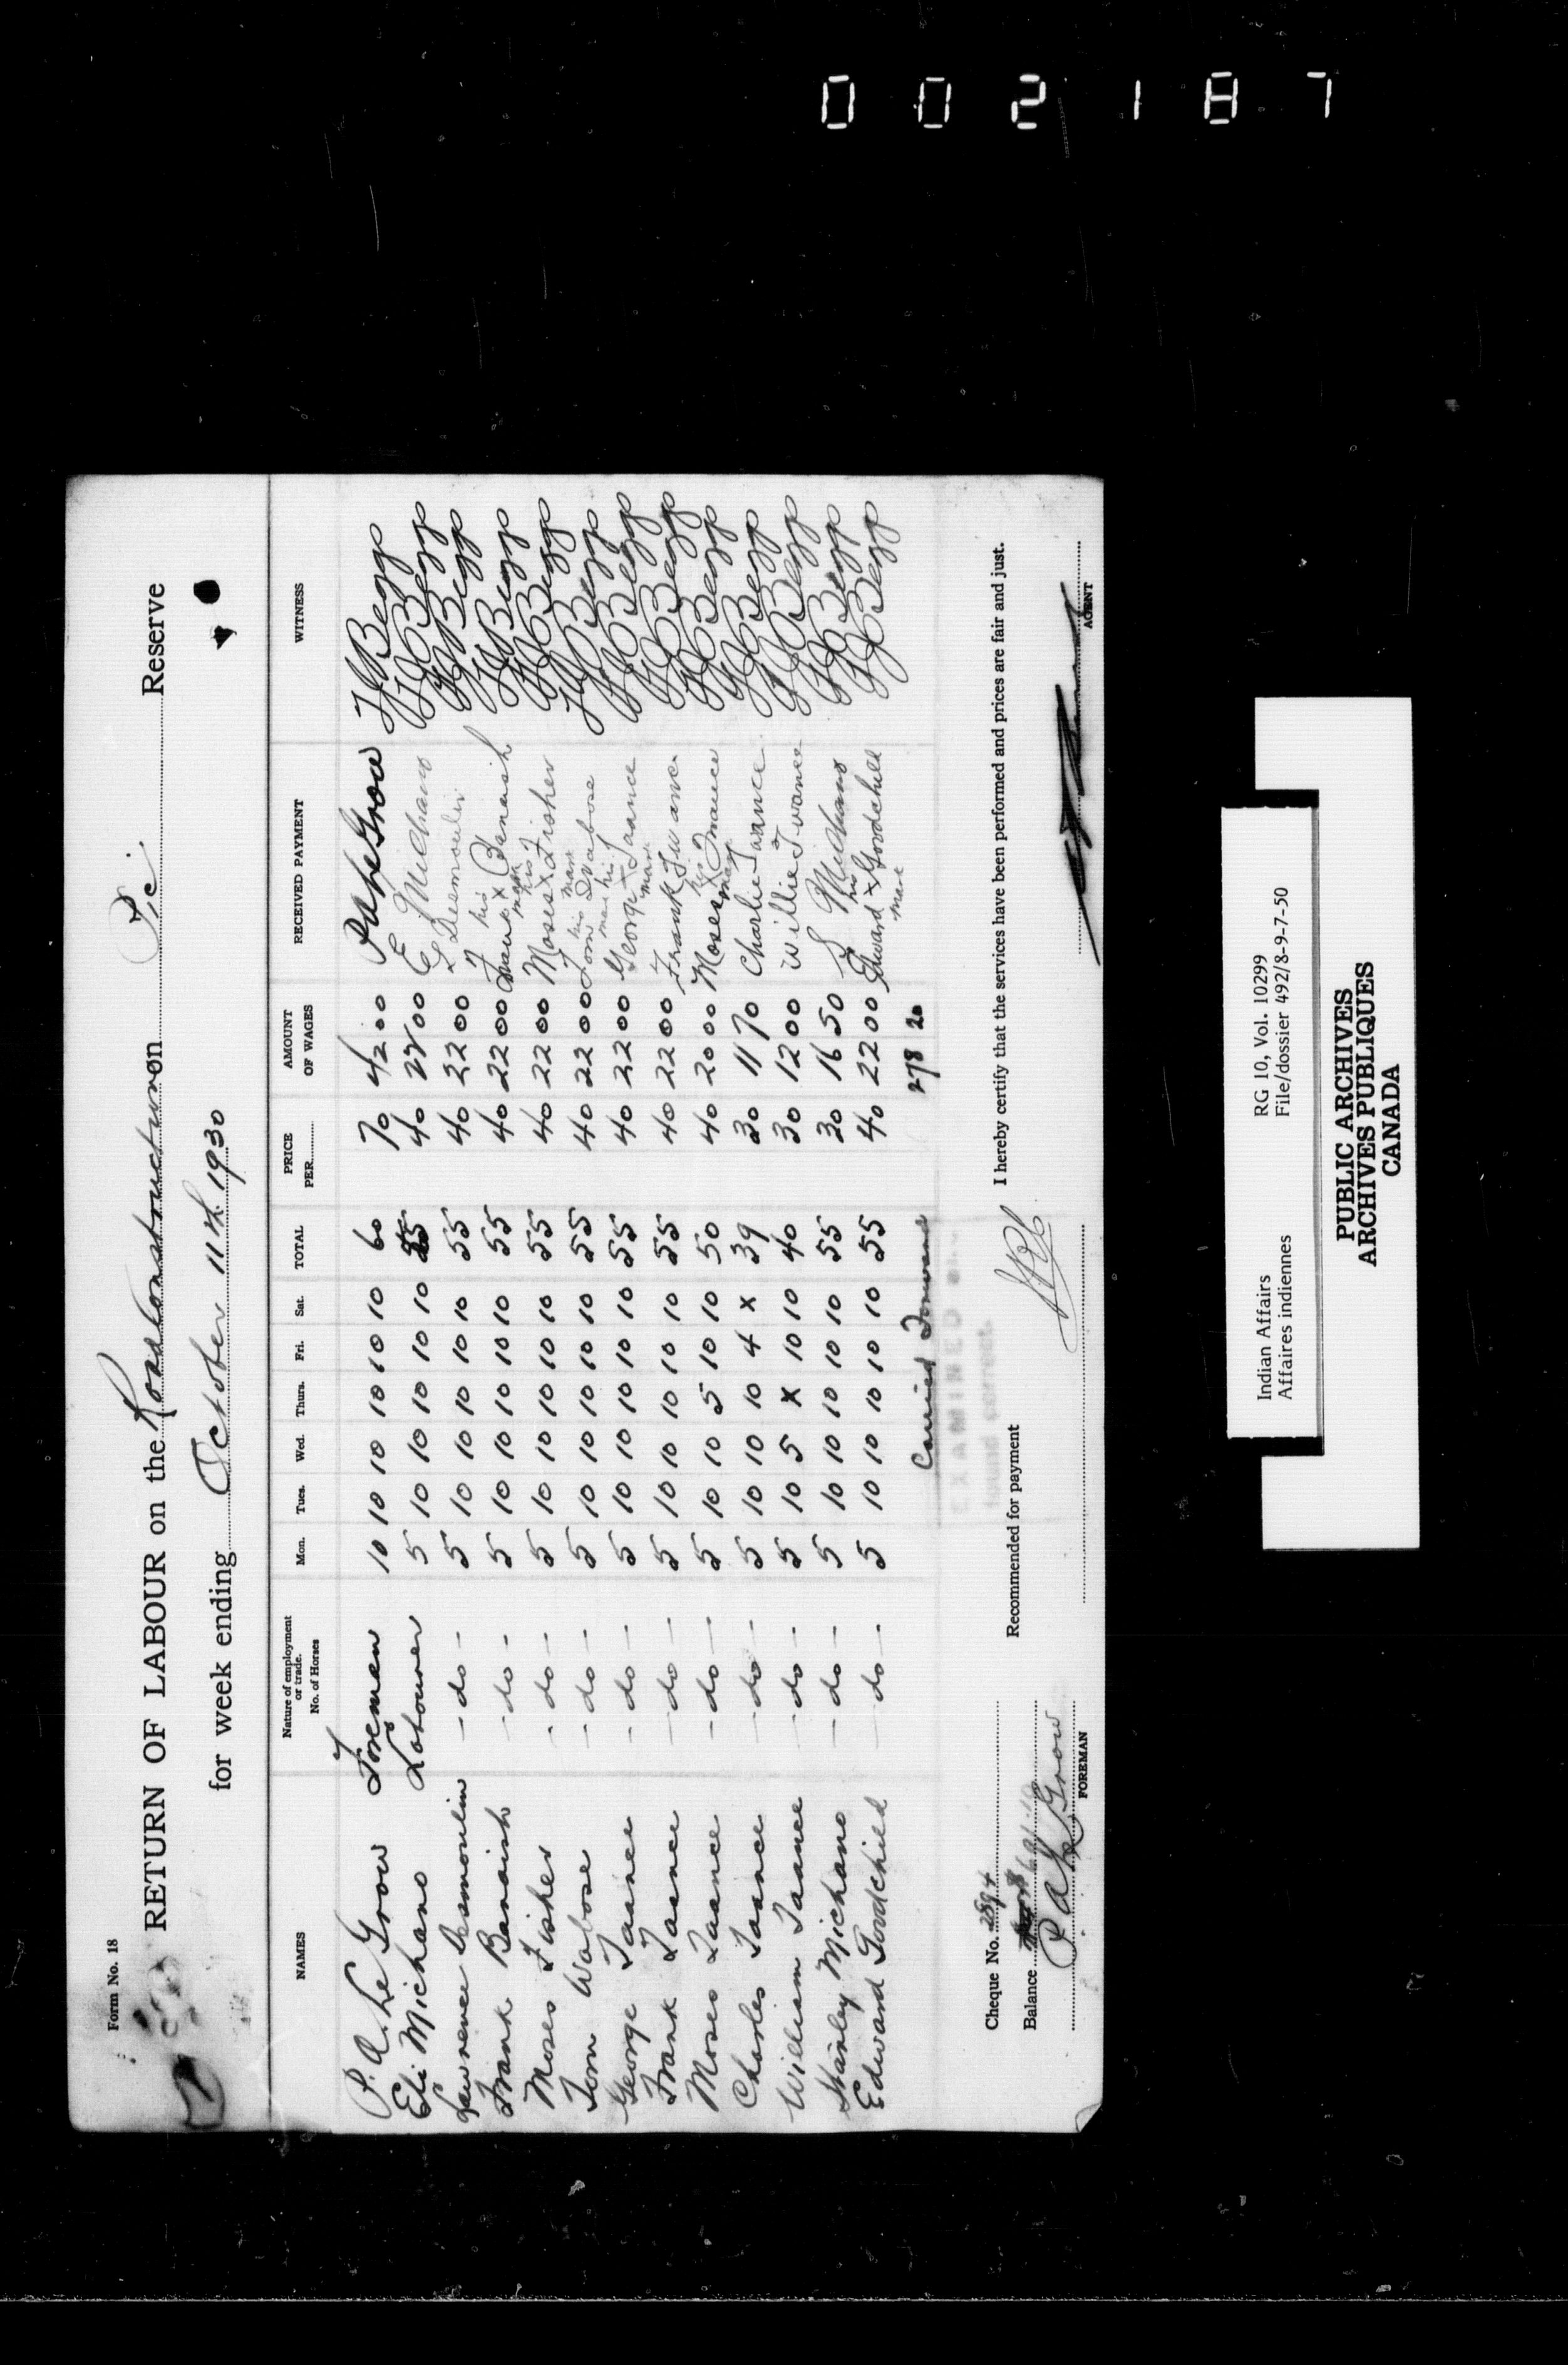 002187
Form No. 18
RETURN OF LABOUR on the Road Construction on Pic Reserve
for week ending October 11th 1930
NAMES Nature of employment or trade. No. of Horses Mon. Tues. Wed. Thurs. Fri. Sat. TOTAL PRICE PER AMOUNT OF WAGES RECEIVED PAYMENT WITNESS
P. A. Le Grow Foreman 10 10 10 10 10 10 60 70 42 00 P A Le Grow J Beggs
Eli Michano Labourer 5 10 10 10 10 10 55 40 22 00 E Michano Beggs
Lawrence Desmoulin - do - 5 10 10 10 10 10 55 40 22 00 L Desmoulin Beggs
Frank Banaish - do - 5 10 10 10 10 10 55 40 22 00 Frank his x mark Banaish Beggs
Moses Fisher - do - 5 10 10 10 10 10 55 40 22 00 Moses his x mark Fisher Beggs
Tom Wabose - do - 5 10 10 10 10 10 55 40 22 00 Tom his mark Wabose Beggs
George Twance - do - 5 10 10 10 10 10 55 40 22 00 George his x mark Twance Beggs
Frank Twance - do - 5 10 10 10 10 10 55 40 22 00 Frank Twance Beggs
Moses Twance - do - 5 10 10 5 10 10 50 40 20 00 Moses his x mark Twance Beggs
Charles Twance - do - 5 10 10 10 4 x 39 30 11 70 Charlie Twance Beggs
William Twance - do - 5 10 5 x 10 10 40 30 12 00 Willie Twance Beggs
Stanley Michano - do - 5 10 10 10 10 10 55 30 16 50 S Michano Beggs
Edward Goodchild - do - 5 10 10 10 10 10 55 40 22 00 Edward his x mark Goodchild Beggs
Carried Forward 278 20
EXAMINED
found correct.
Cheque No. 2894
Balance
Recommended for payment
I hereby certify that the services have been performed and prices are fair and just.
P A Le Grow
FOREMAN
AGENT
Indian Affairs RG 10, Vol. 10299
Affaires indiennes File/dossier 492/8-9-7-50
PUBLIC ARCHIVES
ARCHIVES PUBLIQUES
CANADA